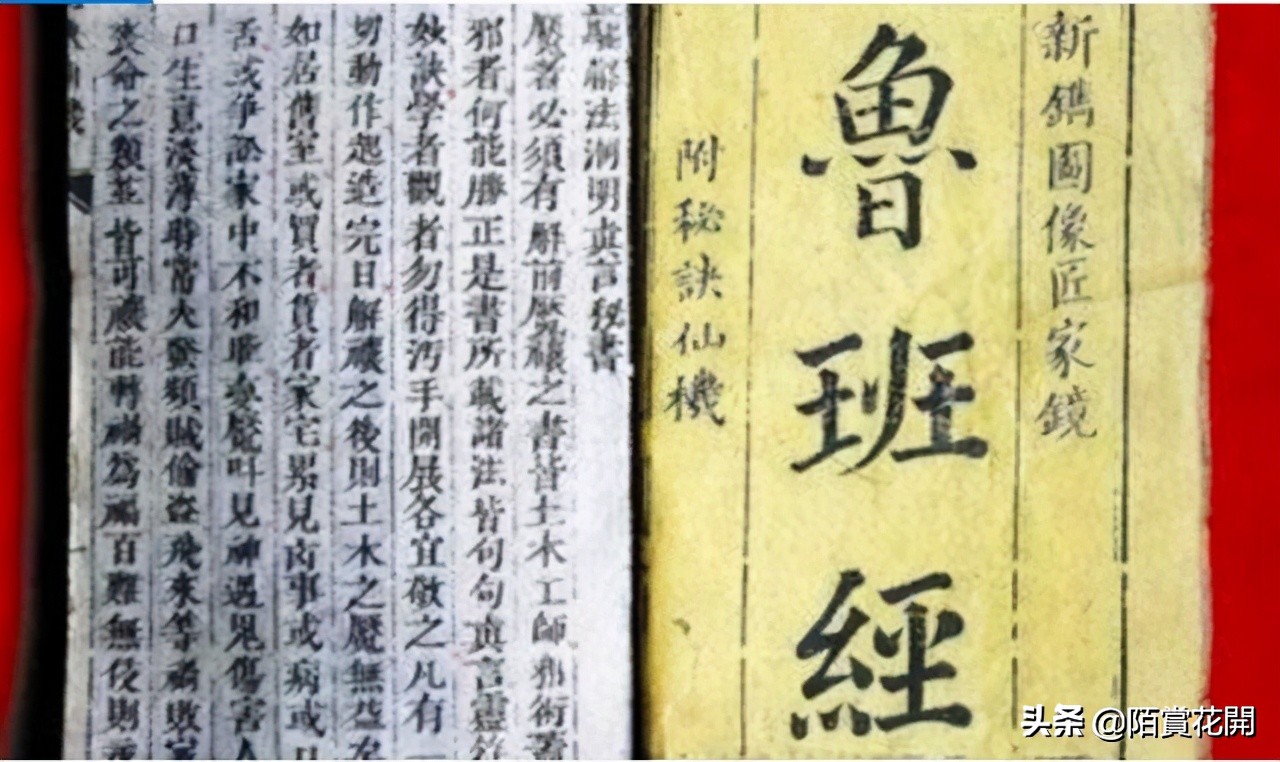 新鐫圖像匠家鏡
魯班經
附秘訣仙機
驅解法洞明眞言秘書
魘者必須有解前魘禳之書皆土木工師邪術
邪者何能勝正是書所載諸法皆句句眞言靈符
妙訣學者觀者勿得污手開展各宜敬之凡有一
切動作起造完日解禳之後則土木之魘無益
如居舊室或買者賃者家宅累見凶事或病或
舌或爭訟家中不和睡夢魘叫見神遇鬼傷害人
口生意淡薄時常火發類賊偷盜飛來等禍敗家
喪命之類並皆可禳能轉禍為福百難無侵則
头条 @陌賞花開